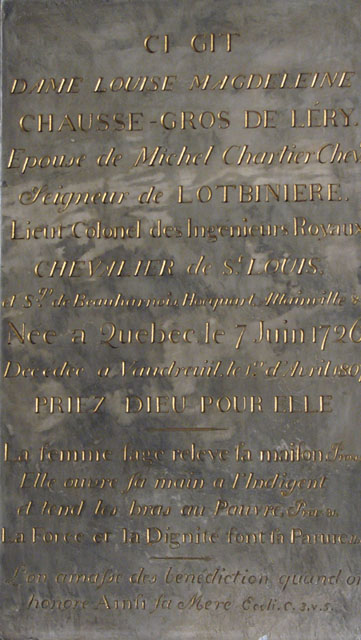 CI GIT
DAME LOUISE MAGDELEINE
CHAUSSE-GROS DE LÉRY.
Epouse de Michel Chartier Chev
Seigneur de LOTBINIERE.
Lieut Colonel des Ingenieurs Royaux
CHEVALIER de St. LOUIS.
et Sr. de Beauharnois, Hocquart, Allainville &
Nee a Quebec le 7 Juin 1720
Decedee a Vaudreuil le 1r. d'Avril 180
PRIEZ DIEU POUR ELLE
La femme sage releve sa maison
Elle ouvre sa main a l'Indigent
et tend les bras au Pauvre,
La Force et la Dignite font sa Parure
L'on amasse des benediction quand on
honore Ainsi sa Mere Eccli. C. 3. v. 5.